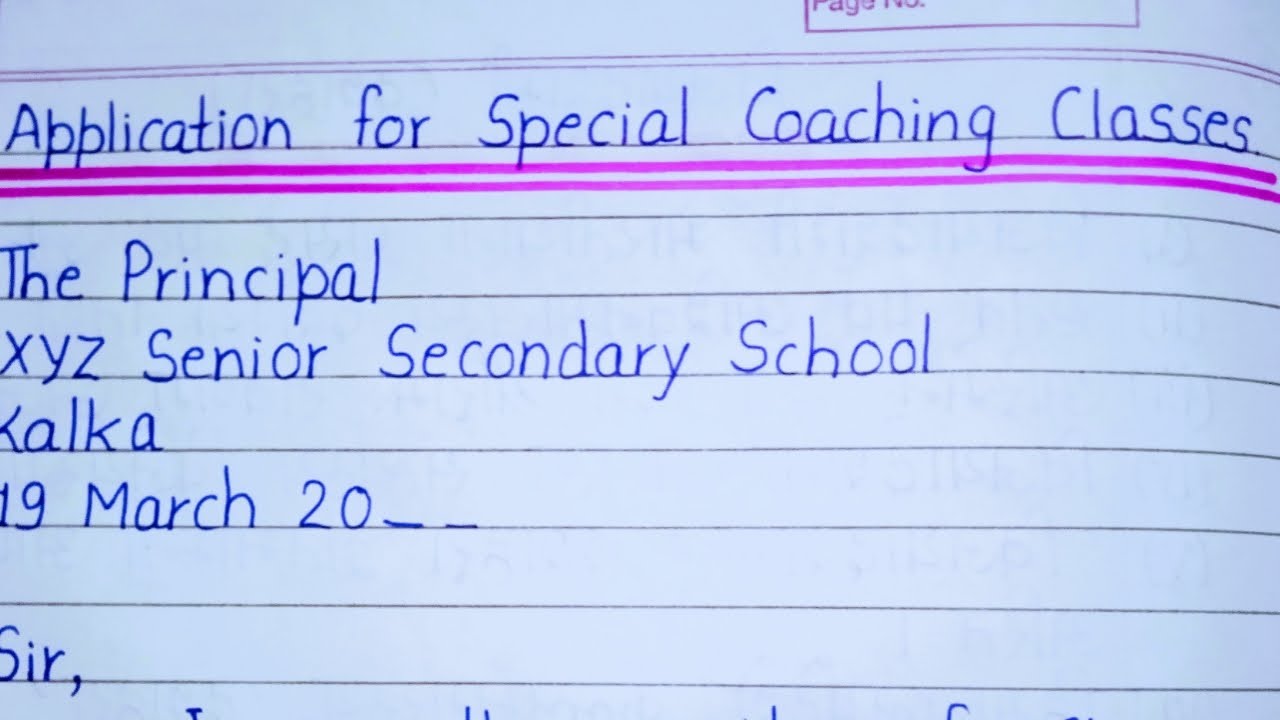 Page No.
Application for Special Coaching Classes.
The Principal
XYZ Senior Secondary School
Kalka
19 March 20_ _
Sir,